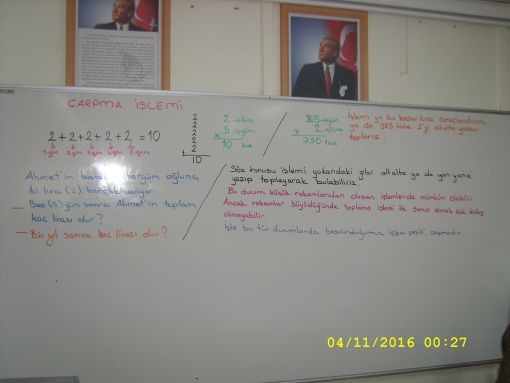 ÇARPMA İŞLEMİ
2+2+2+2+2=10
1.gün 2.gün 3.gün 4.gün 5.gün
2
2
2
2
+ 2
10
2 →lira
5 →gün
x
10 lira
365 →gün
2 →lira
x
730 lira
İşlemi ya bu kadar kısa sonuçlandırırız
ya da 365 tane 2'yi altalta yazar
toplarız.
Ahmet'in babası hergün oğluna
iki lira (2) harçlık veriyor.
— Beş (5) gün sonra Ahmet'in toplam
kaç lirası olur?
— Bir yıl sonra kaç lirası olur?
Söz konusu işlemi yukarıdaki gibi altalta ya da yan yana
yazıp toplayarak bulabiliriz.
Bu durum küçük rakamlardan oluşan işlemlerde mümkün olabilir.
Ancak rakamlar büyüdüğünde toplama işlemi ile sonuç almak çok kolay
olmayabilir.
İşte bu tür durumlarda başvurduğumuz işlem çeşidi, çarpmadır.
04/11/2016 00:27